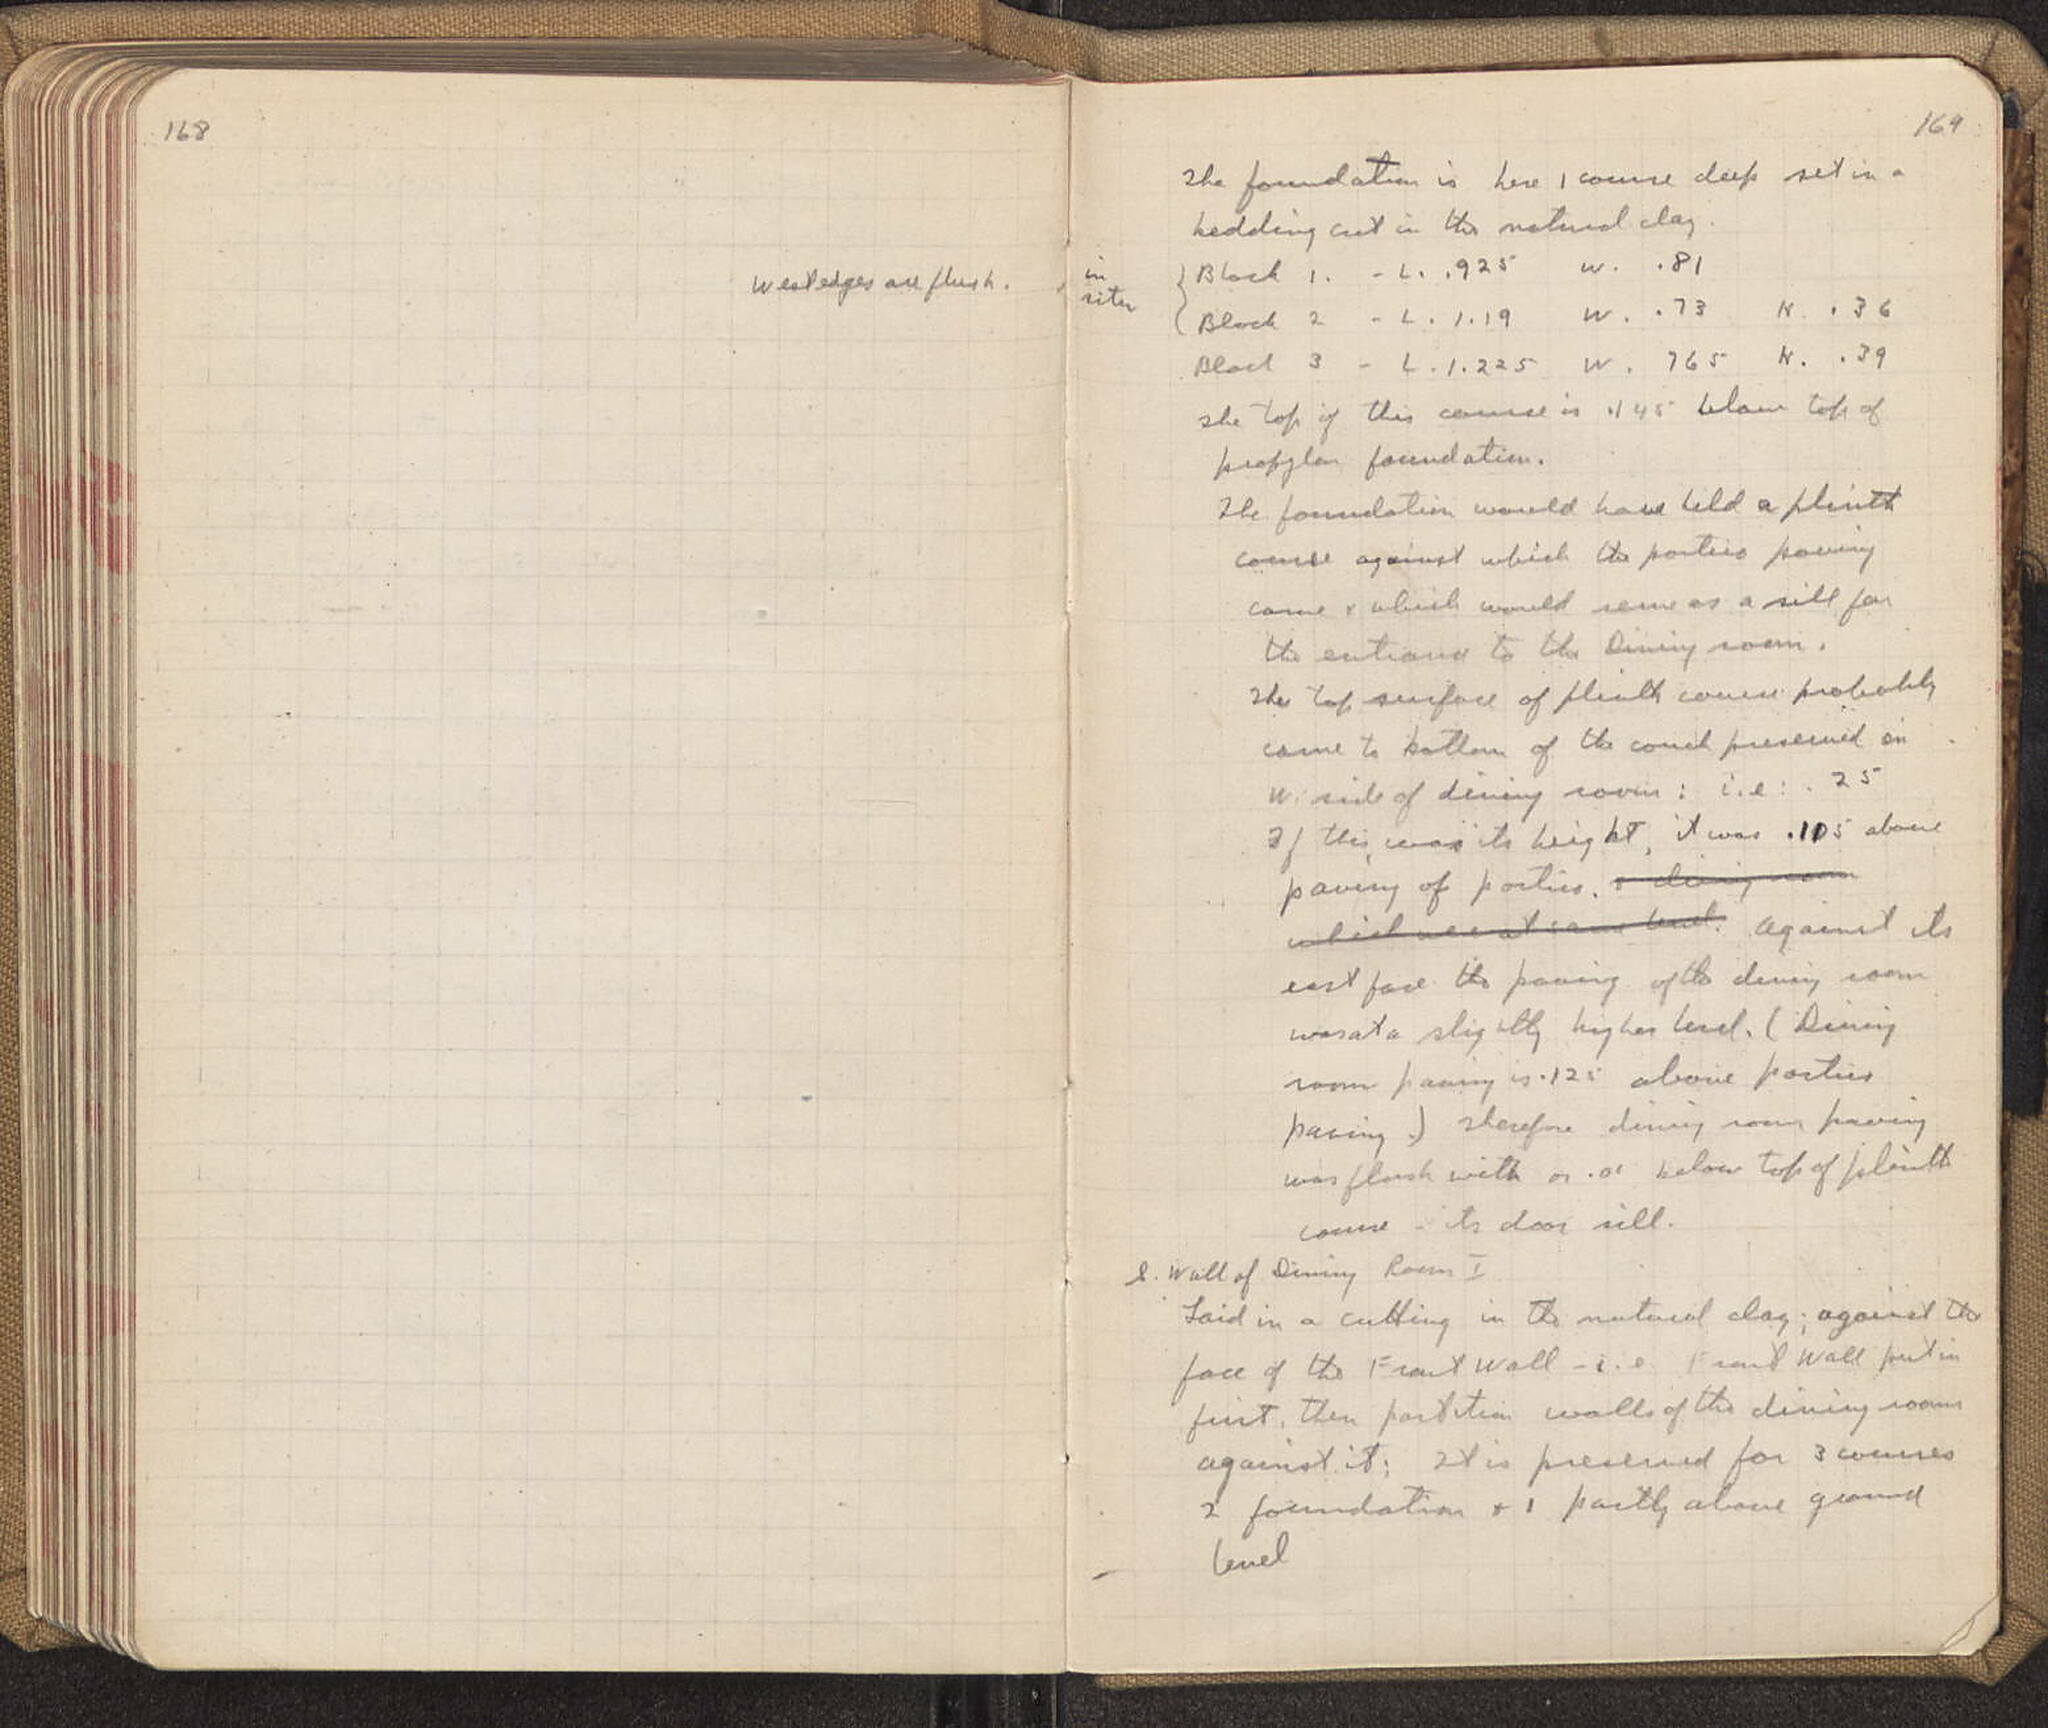 168
West edges are flush.
169
The foundation is here 1 course deep set in a
bedding cut in the natural clay.
in
situ
Block 1. - L. .925 W. .81
Block 2 - L. 1.19 W. .73 H. .36
Block 3 - L. 1.225 W. 765 H. .39
The top of this course is .145 below top of
propylon foundation.
The foundation would have held a plinth
course against which the portico paving
came & which would serve as a sill for
the entrance to the Dining room.
The top surface of plinth course probably
came to bottom of the couch preserved on
W. side of dining room: i.e: .25
If this was its height, it was .105 above
paving of portico. & dining room
which are at same level. Against its
east face the paving of the dining room
was at a slightly higher level. (Dining
room paving is .125 above portico
paving.) Therefore dining room paving
was flush with or .01 below top of plinth
course - its door sill.
S. Wall of Dining Room I
Laid in a cutting in the natural clay; against the
face of the Front Wall - i.e. Front Wall put in
first, then partition walls of the dining rooms
against it: It is preserved for 3 courses
2 foundation & 1 partly above ground
level